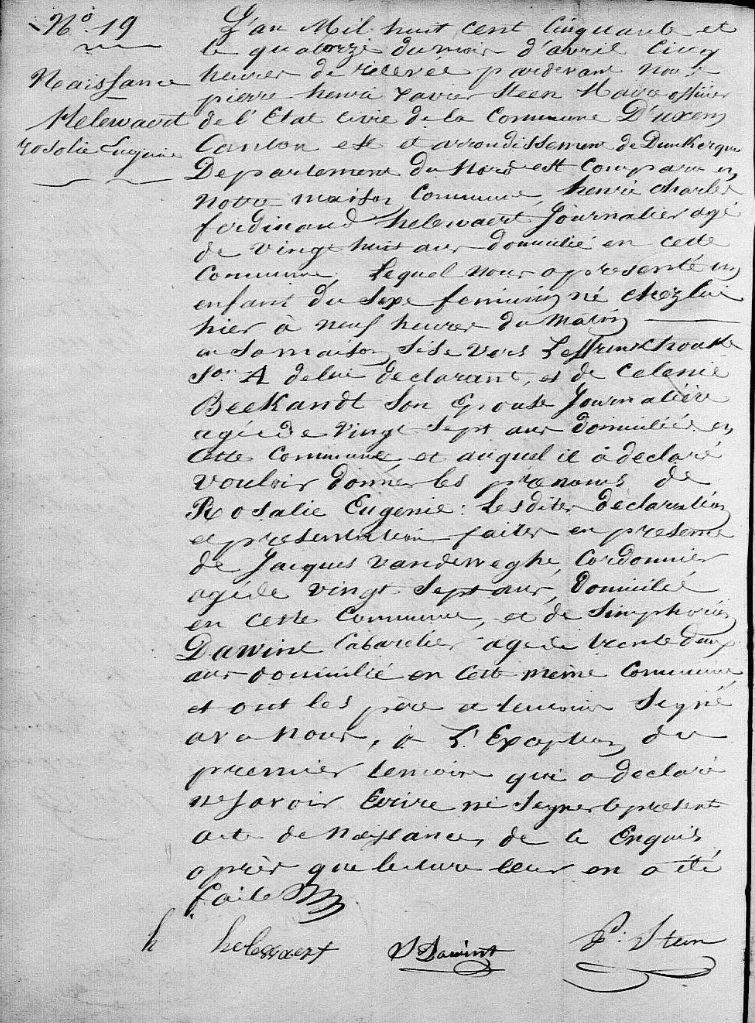 No 19
Naissance
Helewaert
rosalie Eugenie
L'an Mil huit cent Cinquante et
le quatorze du mois d'avril Cinq
heures de relevée pardevant nous
pierre henri Xavier Steen Maire officier
de l'Etat Civil de la Commune D'uxem
Canton est et arrondissement de Dunkerque
Departement du Nord est Comparu en
notre maison Commune, henri Charles
ferdinand helewaert Journalier agé
de vingt huit ans domicilié en cette
Commune, lequel nous a presenté un
enfant du Sexe feminin né chez lui
hier à neuf heures du Matin
en sa maison Sise vers Leffrinckhoucke
Son A de lui declarant, et de Celenie
Beekandt Son Epouse Journaliere
agée de vingt Sept ans domiciliée en
Cette Commune et auquel il à declaré
vouloir donner les prenoms de
Rosalie Eugenie: Lesdites declaration
et presentation faites en presence
de Jacques vandeweghe, Cordonnier
agé de vingt Sept ans, Domicilié
en cette Commune, et de Simphorien
Dawint Cabaretier agé de trente deux
ans domicilié en Cette meme Commune
et ont les père et temoin Signé
avec nous, à L'Exception du
premier temoin qui a declaré
ne Savoir Ecrire ne Signer le present
acte de Naissance, de ce Enquis,
après que lecture leur en a été
faite
h helewaert S Dawint P. Steen